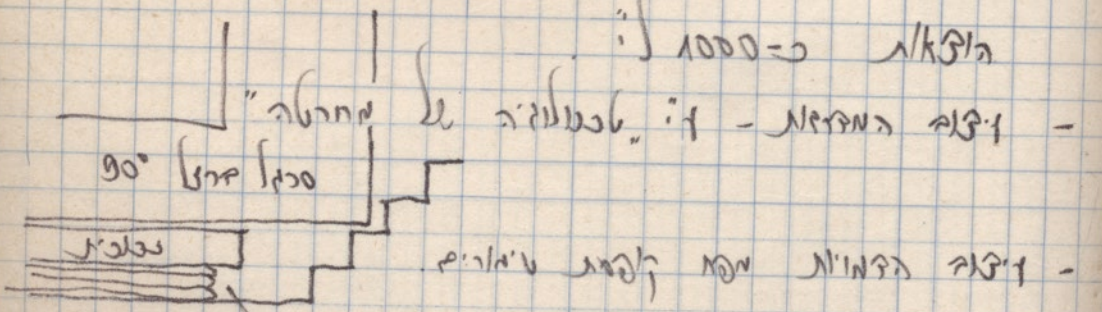 הוצאות כ-1000 ל"י.
- עיצוב המדרגות - ע"י "טכנולוגיה של מחרטה"
סרגל ברזל 90°
זכוכית
- עיצוב הדמויות מפח קופסת שימורים.